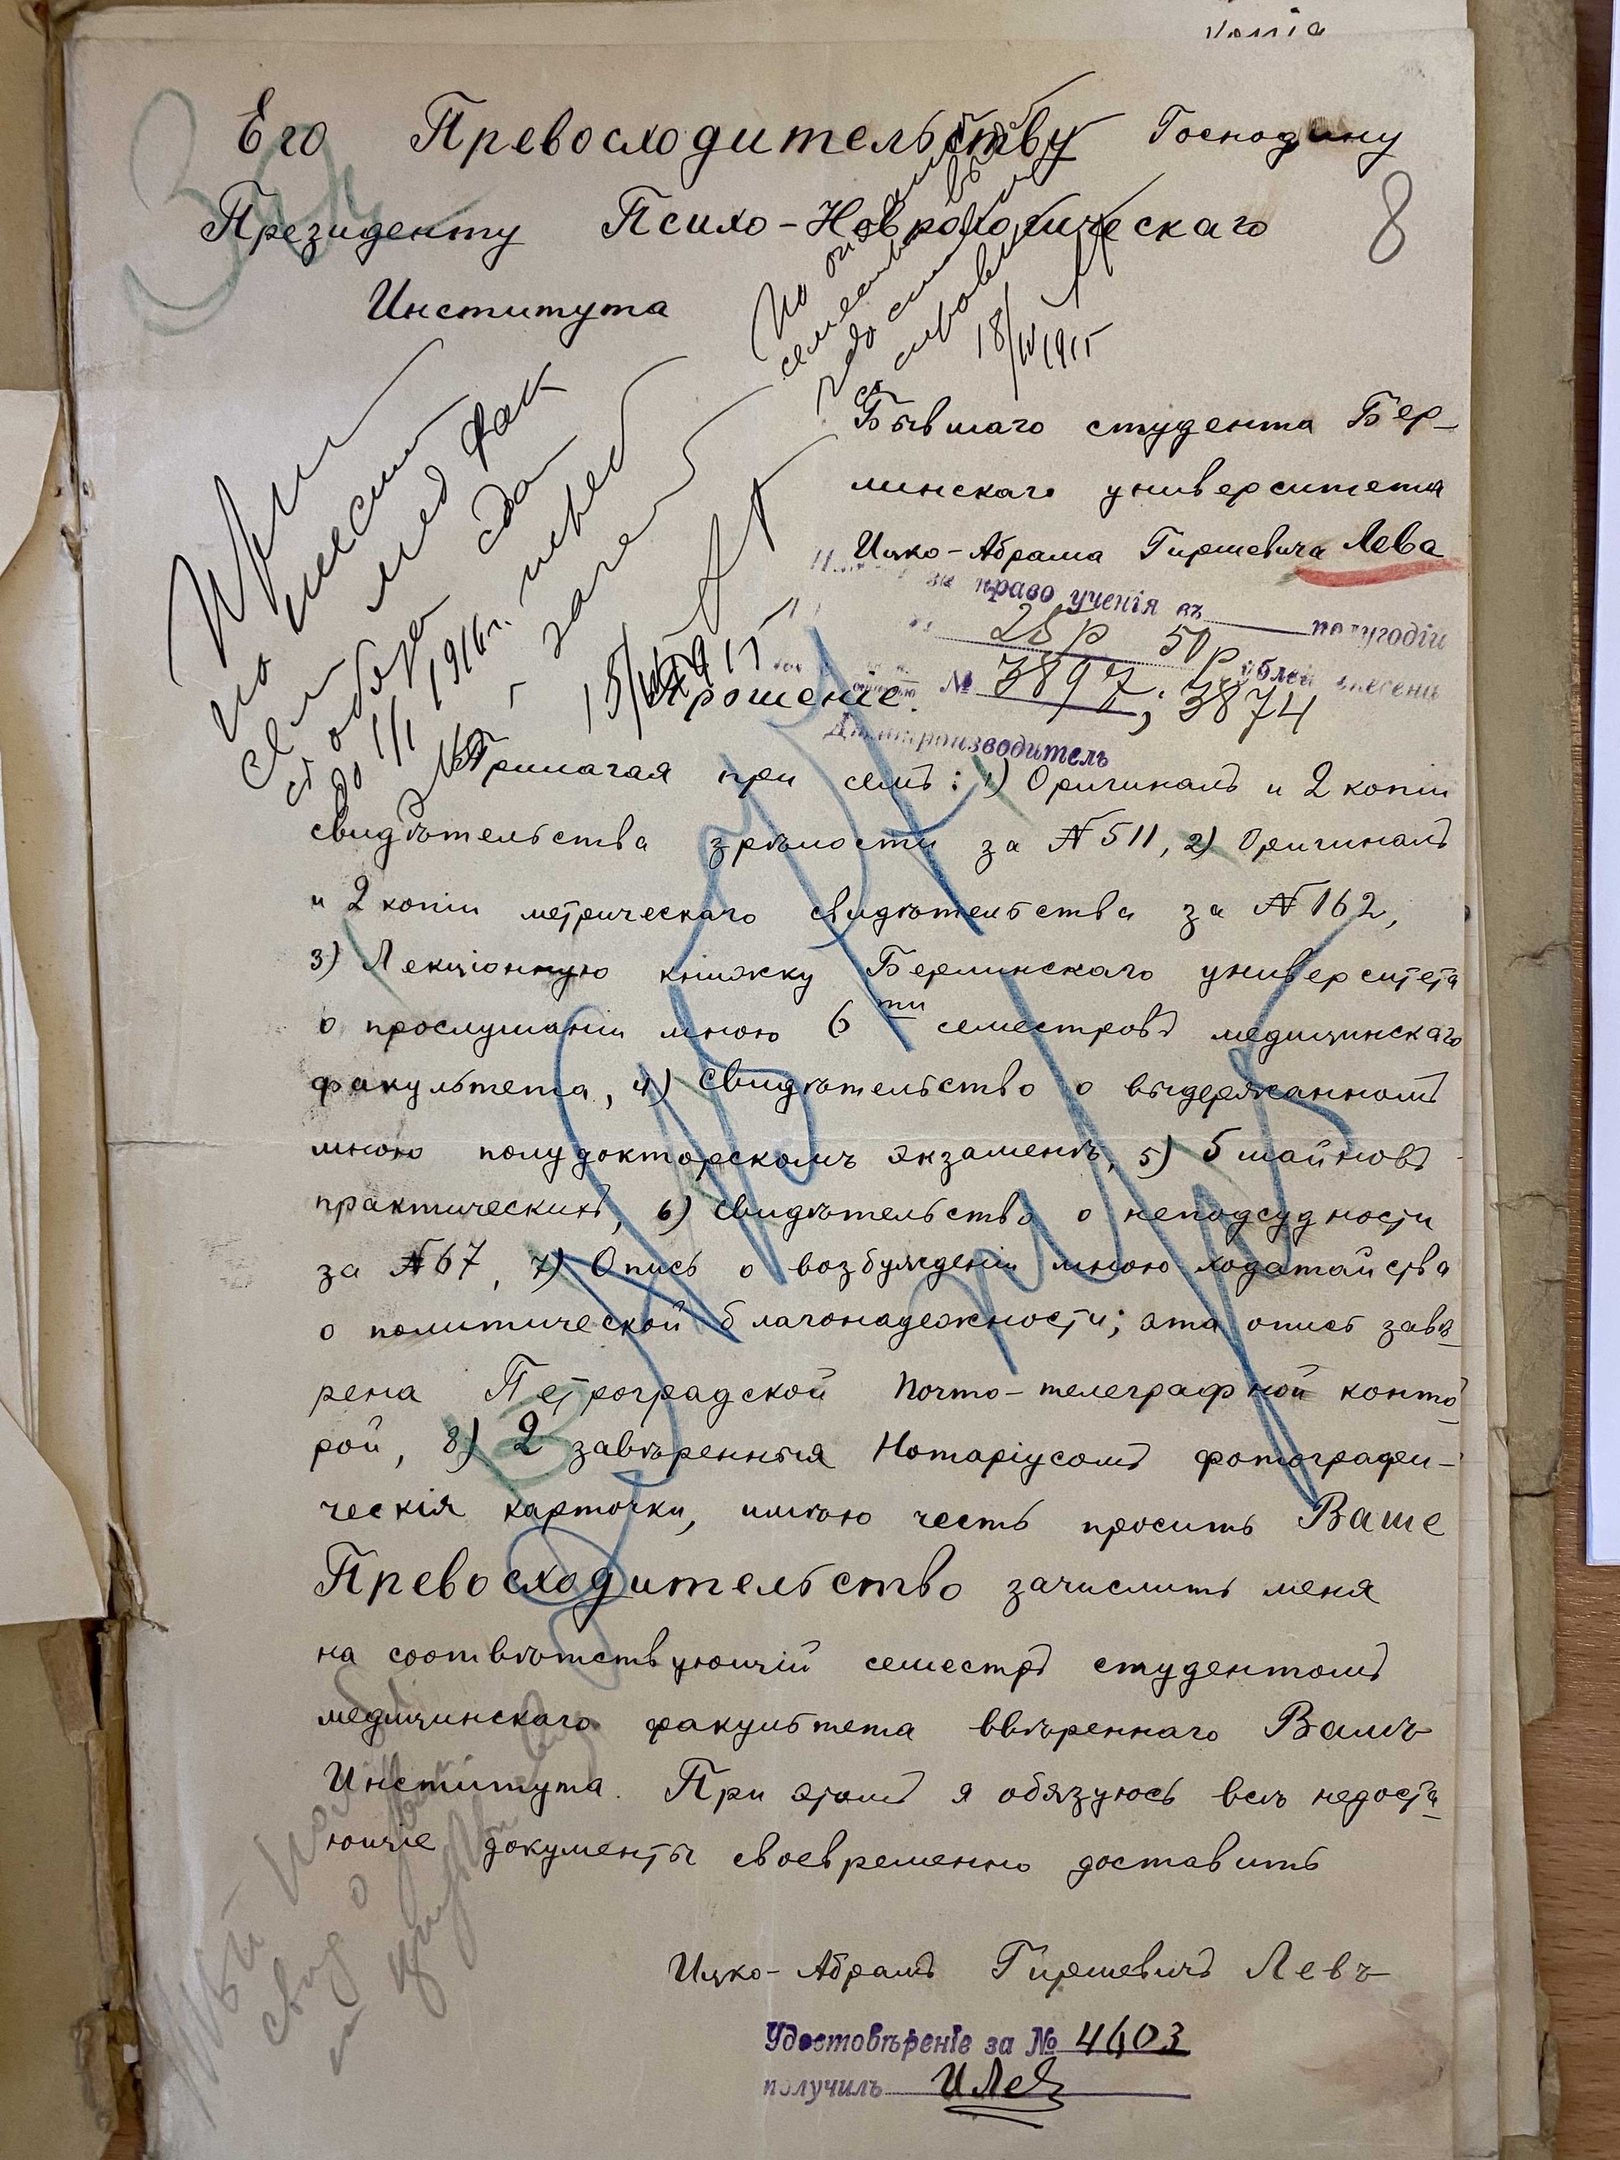 копія
Его Превосходительству Господину
Президенту Психо-Неврологическаго
Института
8
18/IV 1915
Бывшаго студента Бер-
линскаго университета
Ицко-Абрама Гиршевича Лева
за право ученія въ полугодіи
25 р 50 рублей внесена
№ 3897; 3874
Делопроизводитель
Прошеніе.
При
на шестой
сем мед фак
с обяз сдат
до 1/I 1916 г.
зачет
Прилагая при семъ: 1) Оригиналъ и 2 копіи
свидѣтельства зрѣлости за № 511, 2) Оригиналъ
и 2 копіи метрическаго свидѣтельства за № 162,
3) Лекціонную книжку Берлинскаго университета
о прослушаніи мною 6ти семестровъ медицинскаго
факультета, 4) Свидѣтельство о выдержанномъ
мною полудокторскомъ экзаменѣ, 5) 5 шайновъ
практическихъ, 6) свидѣтельство о неподсудности
за № 67, 7) Опись о возбужденіи мною ходатайства
о политической благонадежности; эта опись завѣ-
рена Петроградской Почто-телеграфной конто-
рой, 8) 2 завѣренныя Нотаріусомъ фотографи-
ческія карточки, имѣю честь просить Ваше
Превосходительство зачислить меня
на соотвѣтствующій семестръ студентомъ
медицинскаго факультета ввѣреннаго Вамъ
Института. При этомъ я обязуюсь всѣ недоста-
ющіе документы своевременно доставить
Ицко-Абрамъ Гиршевичъ Левъ
Удостовѣреніе за № 4603
получилъ ИЛев